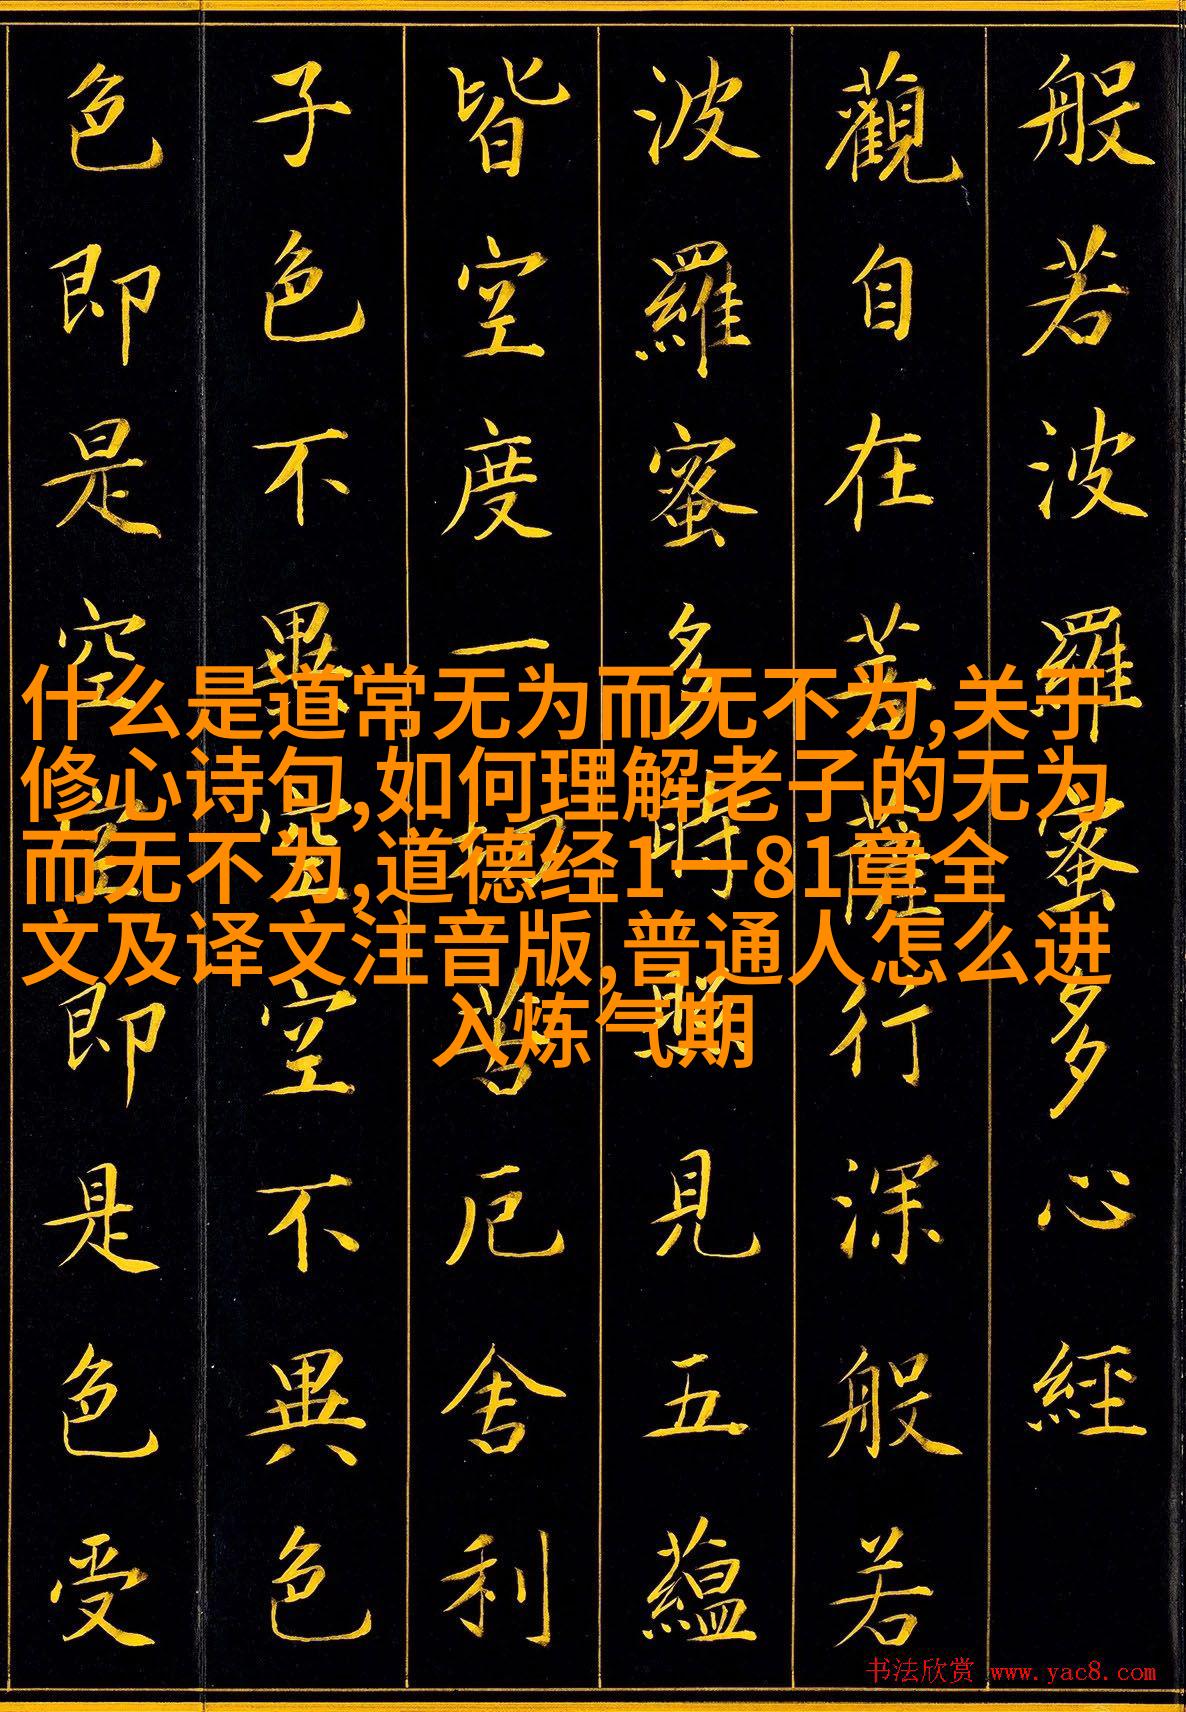 般若波羅蜜多心經
觀自在菩薩行深般若
波羅蜜多時照見五蘊
皆空度一切苦厄舍利
子色不異空空不異色
色即是空空即是色受
什么是道常无为而无不为,关于
修心诗句,如何理解老子的无为
而无不为,道德经1一81章全
文及译文注音版,普通人怎么进
入炼气期
书法欣赏 www.yac8.com